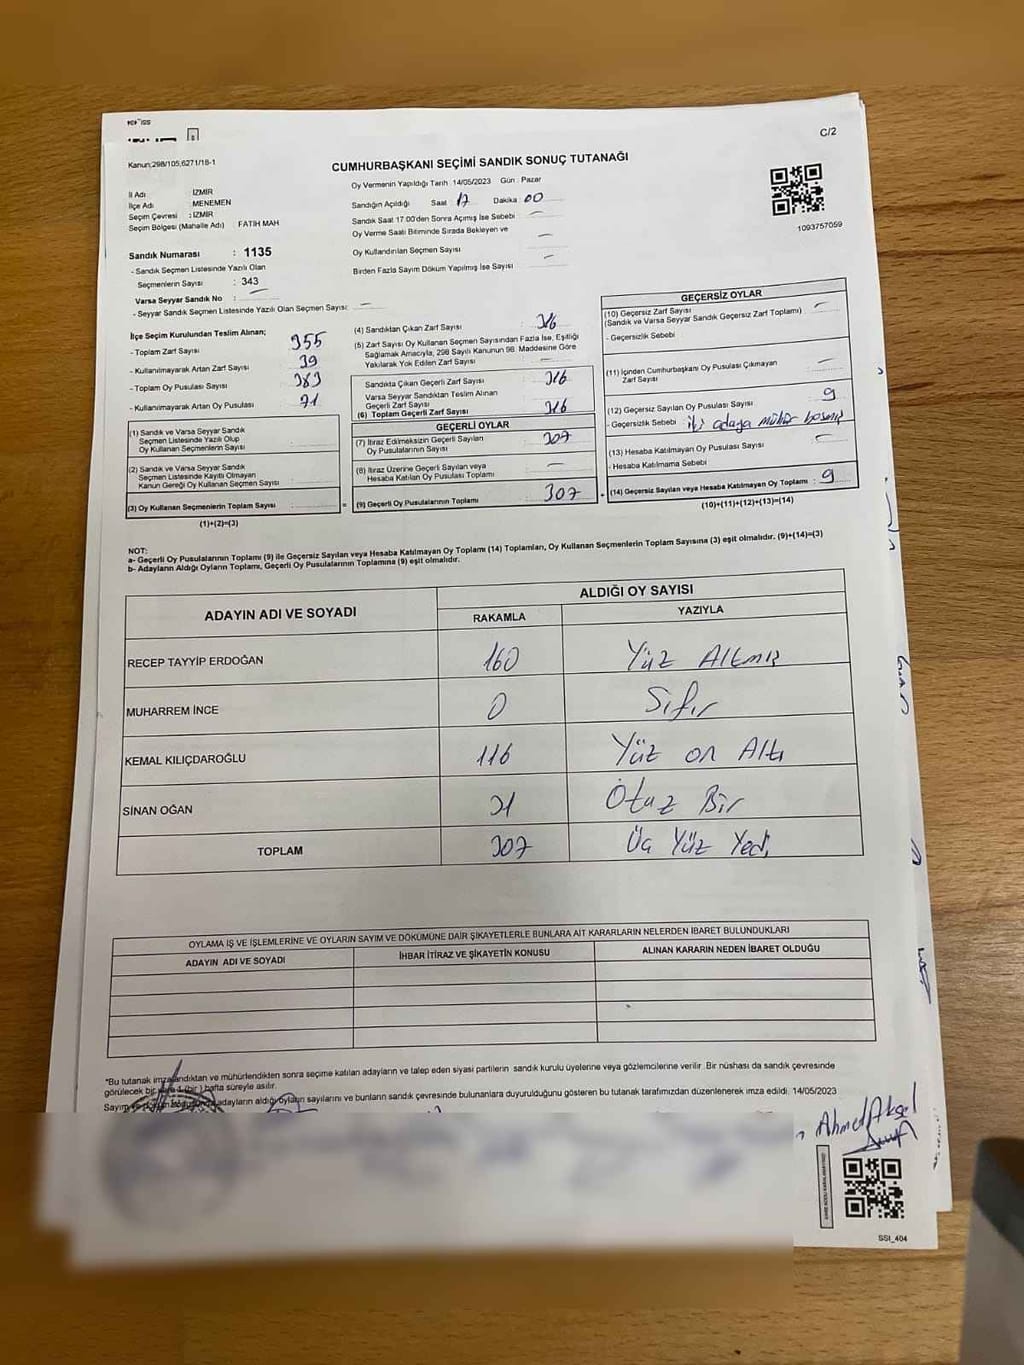 C/2
Kanun;298/105,6271/18-1
CUMHURBAŞKANI SEÇİMİ SANDIK SONUÇ TUTANAĞI
Oy Vermenin Yapıldığı Tarih :14/05/2023 Gün : Pazar
İl Adı : İZMİR
İlçe Adı : MENEMEN
Seçim Çevresi : İZMİR
Seçim Bölgesi (Mahalle Adı) : FATİH MAH
Sandığın Açıldığı Saat 17 Dakika 00
Sandık Saat 17.00'den Sonra Açımış İse Sebebi :
Oy Verme Saati Bitiminde Sırada Bekleyen ve
Oy Kullandırılan Seçmen Sayısı :
Birden Fazla Sayım Döküm Yapılmış İse Sayısı :
1093757059
Sandık Numarası : 1135
- Sandık Seçmen Listesinde Yazılı Olan
Seçmenlerin Sayısı : 343
Varsa Seyyar Sandık No :
- Seyyar Sandık Seçmen Listesinde Yazılı Olan Seçmen Sayısı:
İlçe Seçim Kurulundan Teslim Alınan;
- Toplam Zarf Sayısı 355
- Kullanılmayarak Artan Zarf Sayısı 39
- Toplam Oy Pusulası Sayısı 383
- Kullanılmayarak Artan Oy Pusulası 71
(1) Sandık ve Varsa Seyyar Sandık
Seçmen Listesinde Yazılı Olup
Oy Kullanan Seçmenlerin Sayısı :
(2) Sandık ve Varsa Seyyar Sandık
Seçmen Listesinde Kayıtlı Olmayan
Kanun Gereği Oy Kullanan Seçmen Sayısı :
(3) Oy Kullanan Seçmenlerin Toplam Sayısı :
(1)+(2)=(3)
(4) Sandıktan Çıkan Zarf Sayısı : 316
(5) Zarf Sayısı Oy Kullanan Seçmen Sayısından Fazla İse, Eşitliği
Sağlamak Amacıyla, 298 Sayılı Kanunun 98. Maddesine Göre
Yakılarak Yok Edilen Zarf Sayısı :
Sandıkta Çıkan Geçerli Zarf Sayısı : 316
Varsa Seyyar Sandıktan Teslim Alınan
Geçerli Zarf Sayısı :
(6) Toplam Geçerli Zarf Sayısı : 316
GEÇERLİ OYLAR
(7) İtiraz Edilmeksizin Geçerli Sayılan
Oy Pusulası Sayısı : 307
(8) İtiraz Üzerine Geçerli Sayılan veya
Hesaba Katılan Oy Pusulası Toplamı :
= (9) Geçerli Oy Pusulalarının Toplamı : 307
GEÇERSİZ OYLAR
(10) Geçersiz Zarf Sayısı
(Sandık ve Varsa Seyyar Sandık Geçersiz Zarf Toplamı) :
- Geçersizlik Sebebi :
(11) İçinden Cumhurbaşkanı Oy Pusulası Çıkmayan
Zarf Sayısı :
(12) Geçersiz Sayılan Oy Pusulası Sayısı : 9
- Geçersizlik Sebebi : iki adaya mühür basmış
(13) Hesaba Katılmayan Oy Pusulası Sayısı :
- Hesaba Katılmama Sebebi
+ (14) Geçersiz Sayılan veya Hesaba Katılmayan Oy Toplamı : 9
(10)+(11)+(12)+(13)=(14)
NOT:
a- Geçerli Oy Pusulalarının Toplamı (9) ile Geçersiz Sayılan veya Hesaba Katılmayan Oy Toplamı (14) Toplamları, Oy Kullanan Seçmenlerin Toplam Sayısına (3) eşit olmalıdır. (9)+(14)=(3)
b- Adayların Aldığı Oyların Toplamı, Geçerli Oy Pusulalarının Toplamına (9) eşit olmalıdır.
ADAYIN ADI VE SOYADI
ALDIĞI OY SAYISI
RAKAMLA YAZIYLA
RECEP TAYYİP ERDOĞAN 160 Yüz Altmış
MUHARREM İNCE 0 Sıfır
KEMAL KILIÇDAROĞLU 116 Yüz on Altı
SİNAN OĞAN 31 Otuz Bir
TOPLAM 307 Üç Yüz Yedi
OYLAMA İŞ VE İŞLEMLERİNE VE OYLARIN SAYIM VE DÖKÜMÜNE DAİR ŞİKAYETLERLE BUNLARA AİT KARARLARIN NELERDEN İBARET BULUNDUKLARI
ADAYIN ADI VE SOYADI İHBAR İTİRAZ VE ŞİKAYETİN KONUSU ALINAN KARARIN NEDEN İBARET OLDUĞU
*Bu tutanak imzalandıktan ve mühürlendikten sonra seçime katılan adayların ve talep eden siyasi partilerin sandık kurulu üyelerine veya gözlemcilerine verilir. Bir nüshası da sandık çevresinde
görülecek bir yere 1 (bir) hafta süreyle asılır.
adayların aldığı oyların sayılarını ve bunların sandık çevresinde bulunanlara duyurulduğunu gösteren bu tutanak tarafımızdan düzenlenerek imza edildi. 14/05/2023
Ahmet Aksel
SSI_404